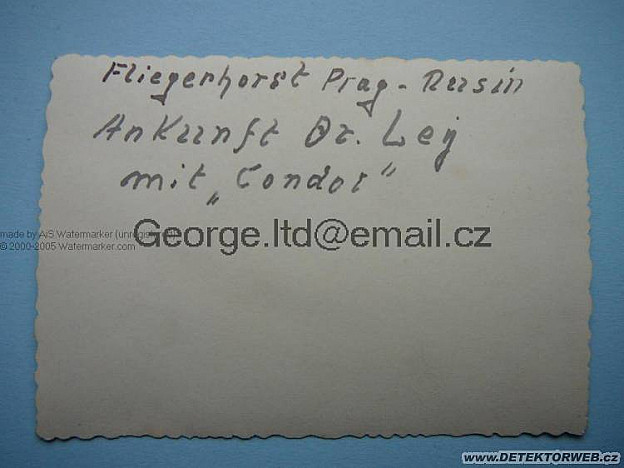 Fliegerhorst Prag - Rusin
Ankunft Dr. Ley
mit „Condor"
George.ltd@email.cz
made by A/S Watermarker (unregistered)
© 2000-2005 Watermarker.com
www.DETEKTORWEB.cz